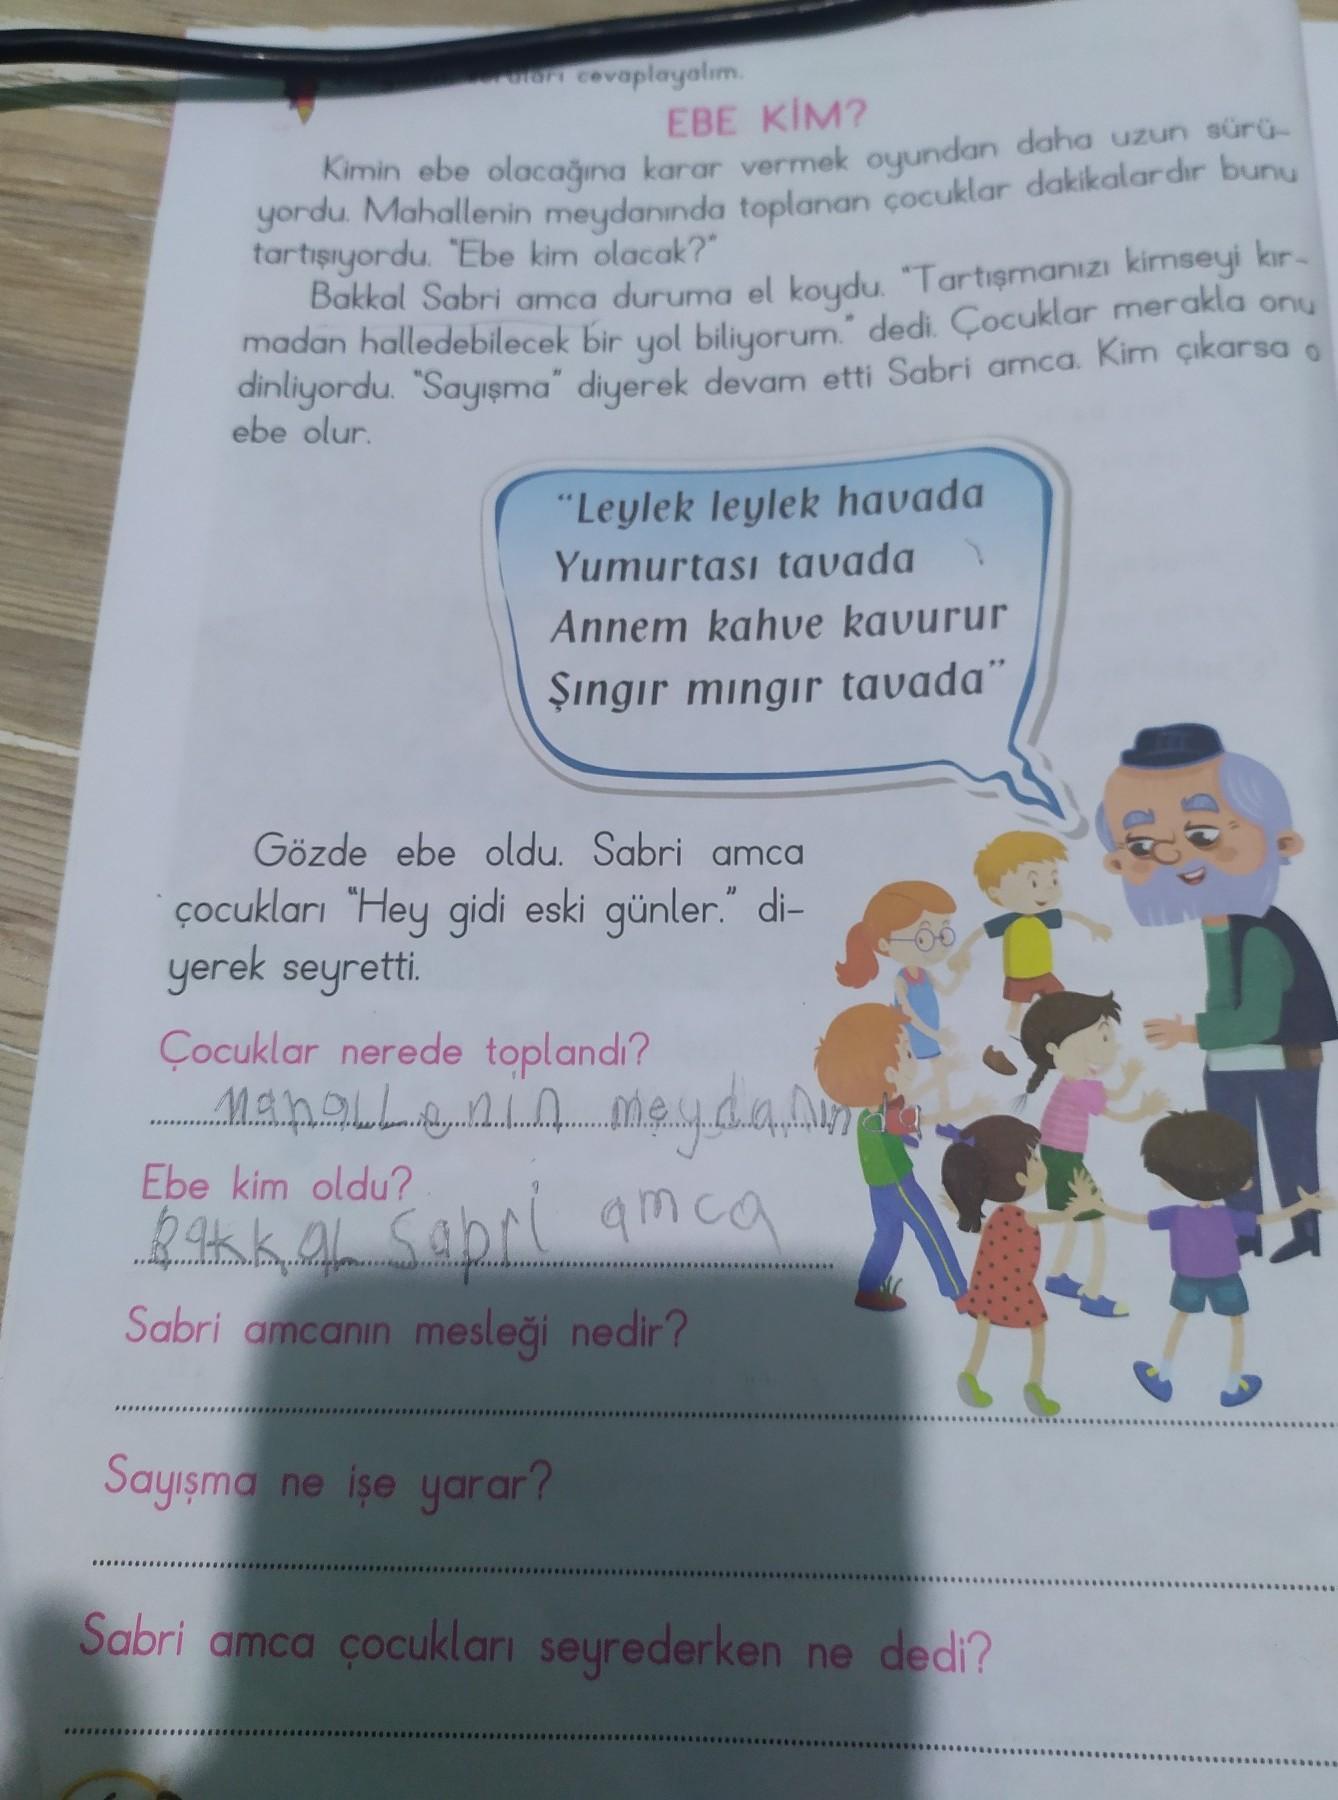 cevaplayalım.
EBE KİM?
Kimin ebe olacağına karar vermek oyundan daha uzun sürü-
yordu. Mahallenin meydanında toplanan çocuklar dakikalardır bunu
tartışıyordu. "Ebe kim olacak?"
Bakkal Sabri amca duruma el koydu. "Tartışmanızı kimseyi kır-
madan halledebilecek bir yol biliyorum." dedi. Çocuklar merakla onu
dinliyordu. "Sayışma" diyerek devam etti Sabri amca. Kim çıkarsa o
ebe olur.
"Leylek leylek havada
Yumurtası tavada
Annem kahve kavurur
Şıngır mıngır tavada"
Gözde ebe oldu. Sabri amca
çocukları "Hey gidi eski günler." di-
yerek seyretti.
Çocuklar nerede toplandı?
Mahallenin meydanında
Ebe kim oldu?
Bakkal Sabri amca
Sabri amcanın mesleği nedir?
Sayışma ne işe yarar?
Sabri amca çocukları seyrederken ne dedi?